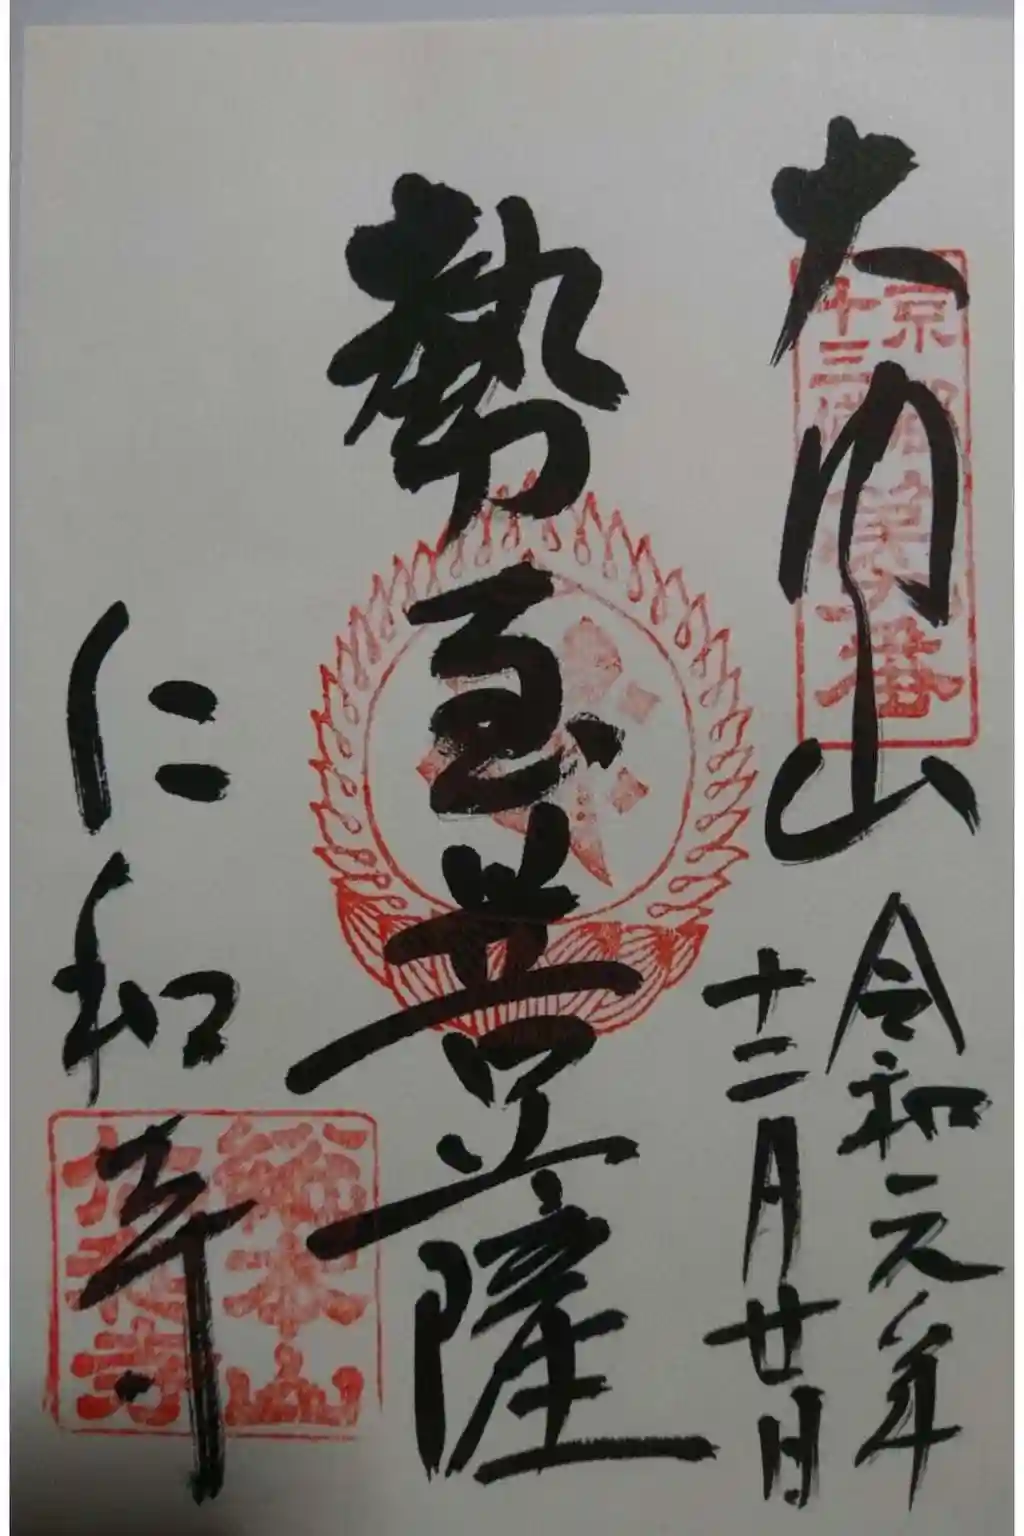 大内山
京都
十三佛
第九番
令和元年
十二月廿日
勢至菩薩
仁和寺
總本山
仁和寺